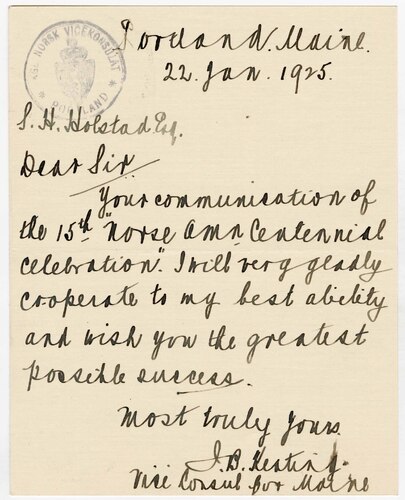 KGL. NORSK VICEKONSULAT
* PORTLAND *
Portland. Maine.
22. Jan. 1925.
S. H. Holstad Esq.
Dear Sir
Your communication of
the 15th "Norse Amn Centennial
Celebration". I will very gladly
cooperate to my best ability
and wish you the greatest
possible success.
Most truly yours
J. B. Keating.
Vice Consul for Maine